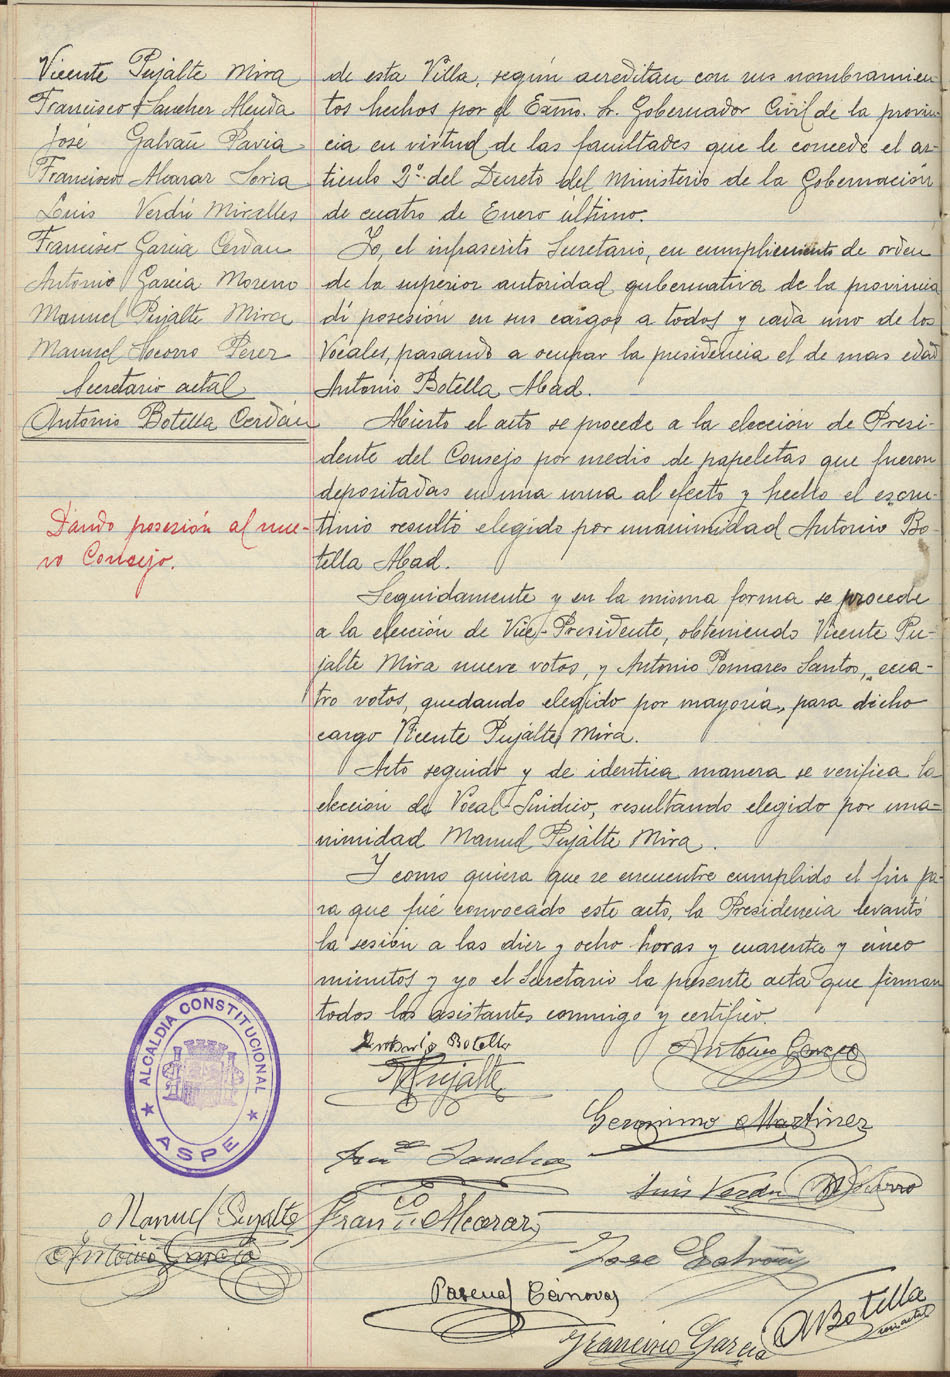 Vicente Pujalte Mira
Francisco Sancher Alenda
José Galvañ Pavia
Francisco Alcarar Soria
Luis Verdú Miralles
Francisco Garcia Cerdan
Antonio Garcia Moreno
Manuel Pujalte Mira
Manuel Socorro Perez
Secretario actal
Antonio Botella Cerdán
Dando posesión al nue-
vo Consejo.
de esta Villa, según acreditan con sus nombramien-
tos hechos por el Exmo. Sr. Gobernador Civil de la provin-
cia en virtud de las facultades que le concede el ar-
ticulo 2º del Decreto del Ministerio de la Gobernación
de cuatro de Enero último.
Yo, el infrascrito Secretario, en cumplimiento de orden
de la superior autoridad gubernativa de la provincia
di posesión en sus cargos a todos y cada uno de los
Vocales, pasando a ocupar la presidencia el de mas edad
Antonio Botella Abad.
Abierto el acto se procede a la elección de Presi-
dente del Consejo por medio de papeletas que fueron
depositadas en una urna al efecto y hecho el escru-
tinio resultó elegido por unanimidad Antonio Bo-
tella Abad.
Seguidamente y en la misma forma se procede
a la elección de Vice-Presidente, obteniendo Vicente Pu-
jalte Mira nueve votos, y Antonio Pomares Santos, cua-
tro votos, quedando elegido por mayoria, para dicho
cargo Vicente Pujalte Mira.
Acto seguido y de identica manera se verifica la
elección de Vocal-Sindico, resultando elegido por una-
nimidad Manuel Pujalte Mira.
Y como quiera que se encuentre cumplido el fin pa-
ra que fué convocado este acto, la Presidencia levantó
la sesión a las diez y ocho horas y cuarenta y cinco
minutos y yo el Secretario la presente acta que firman
todos los asistentes conmigo y certifico.
Botella
Antonio Garcia
VPujalte
Geronimo Martinez
Franco Sanchez
Luis Verdu MSocorro
Manuel Pujalte
Franco Alcaraz
Antonio Garcia
Jose Galvañ
Pascual Cánovas
Francisco Garcia
ABotella
ALCALDIA CONSTITUCIONAL
★ ASPE ★